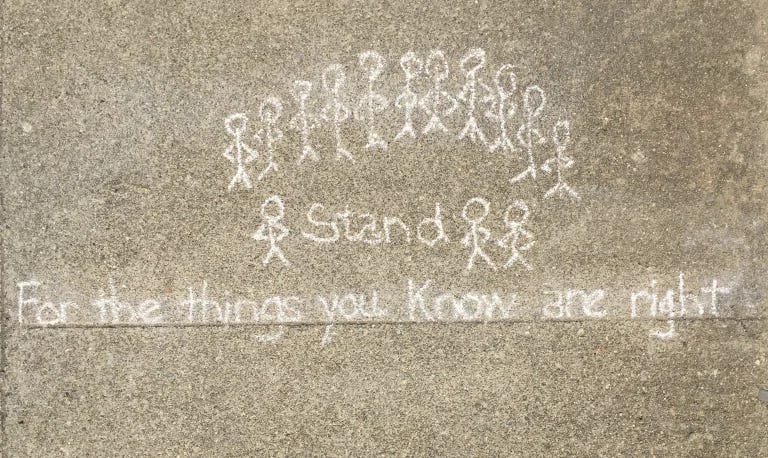 Stand
For the things you Know are right